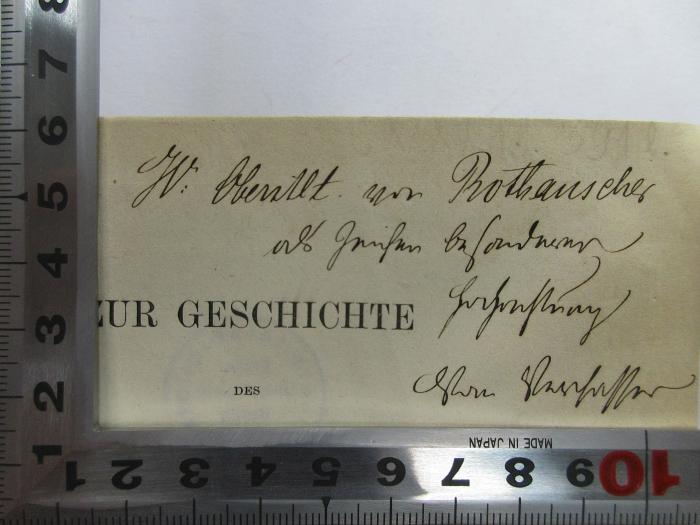 Hr. Oberstlt. von Rothauscher
als Zeichen besonderer
Hochachtung
ZUR GESCHICHTE
DES
Vom Verfasser
MADE IN JAPAN
8
7
6
5
4
3
2
1
1 2 3 4 5 6 7 8 9 10 1